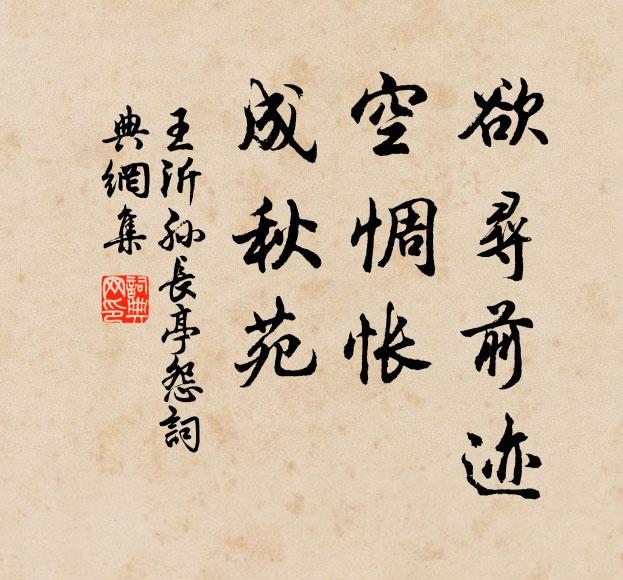 欲寻前迹
空惆怅
成秋苑
王沂孙長亭怨詞
典網集
詞典网印